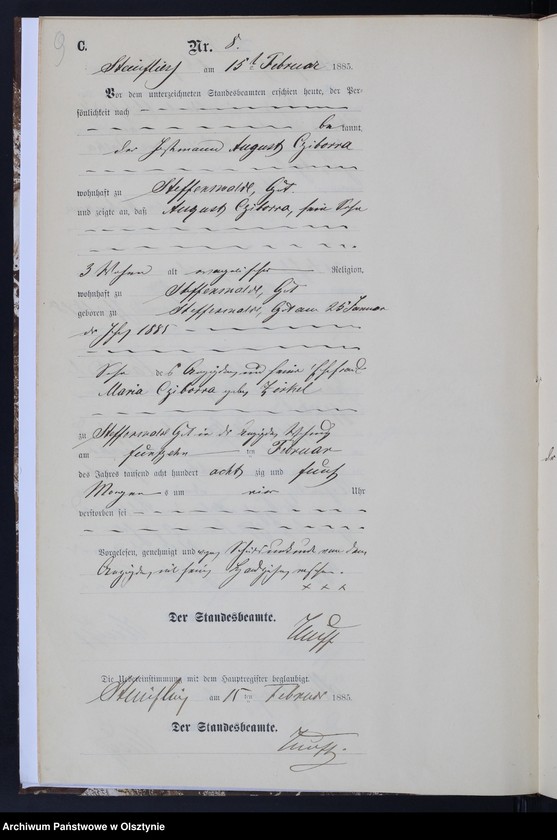 9
C.
Nr. 8.
am 15t Februar 1885.
Vor dem unterzeichneten Standesbeamten erschien heute, der Per-
sönlichkeit nach
be kannt,
der August Cziborra
wohnhaft zu Steffenswalde, Gut
und zeigte an, daß August Cziborra, sein Sohn
3 Wochen alt evangelischer Religion,
wohnhaft zu Steffenswalde, Gut
geboren zu Steffenswalde, Gut am 25 Januar
des Jahres 1885
Sohn des Anzeigenden und seiner Ehefrau
Maria Cziborra geb.
zu Steffenswalde Gut in des Anzeigenden Wohnung
am fünfzehn ten Februar
des Jahres tausend acht hundert acht zig und fünf
Morgens um vier Uhr
verstorben sei
Vorgelesen, genehmigt und wegen von dem
Anzeigenden mit seinem Handzeichen versehen.
+ + +
Der Standesbeamte.
Die Uebereinstimmung mit dem Hauptregister beglaubigt.
am 15 ten Februar 1885.
Der Standesbeamte.
Archiwum Państwowe w Olsztynie